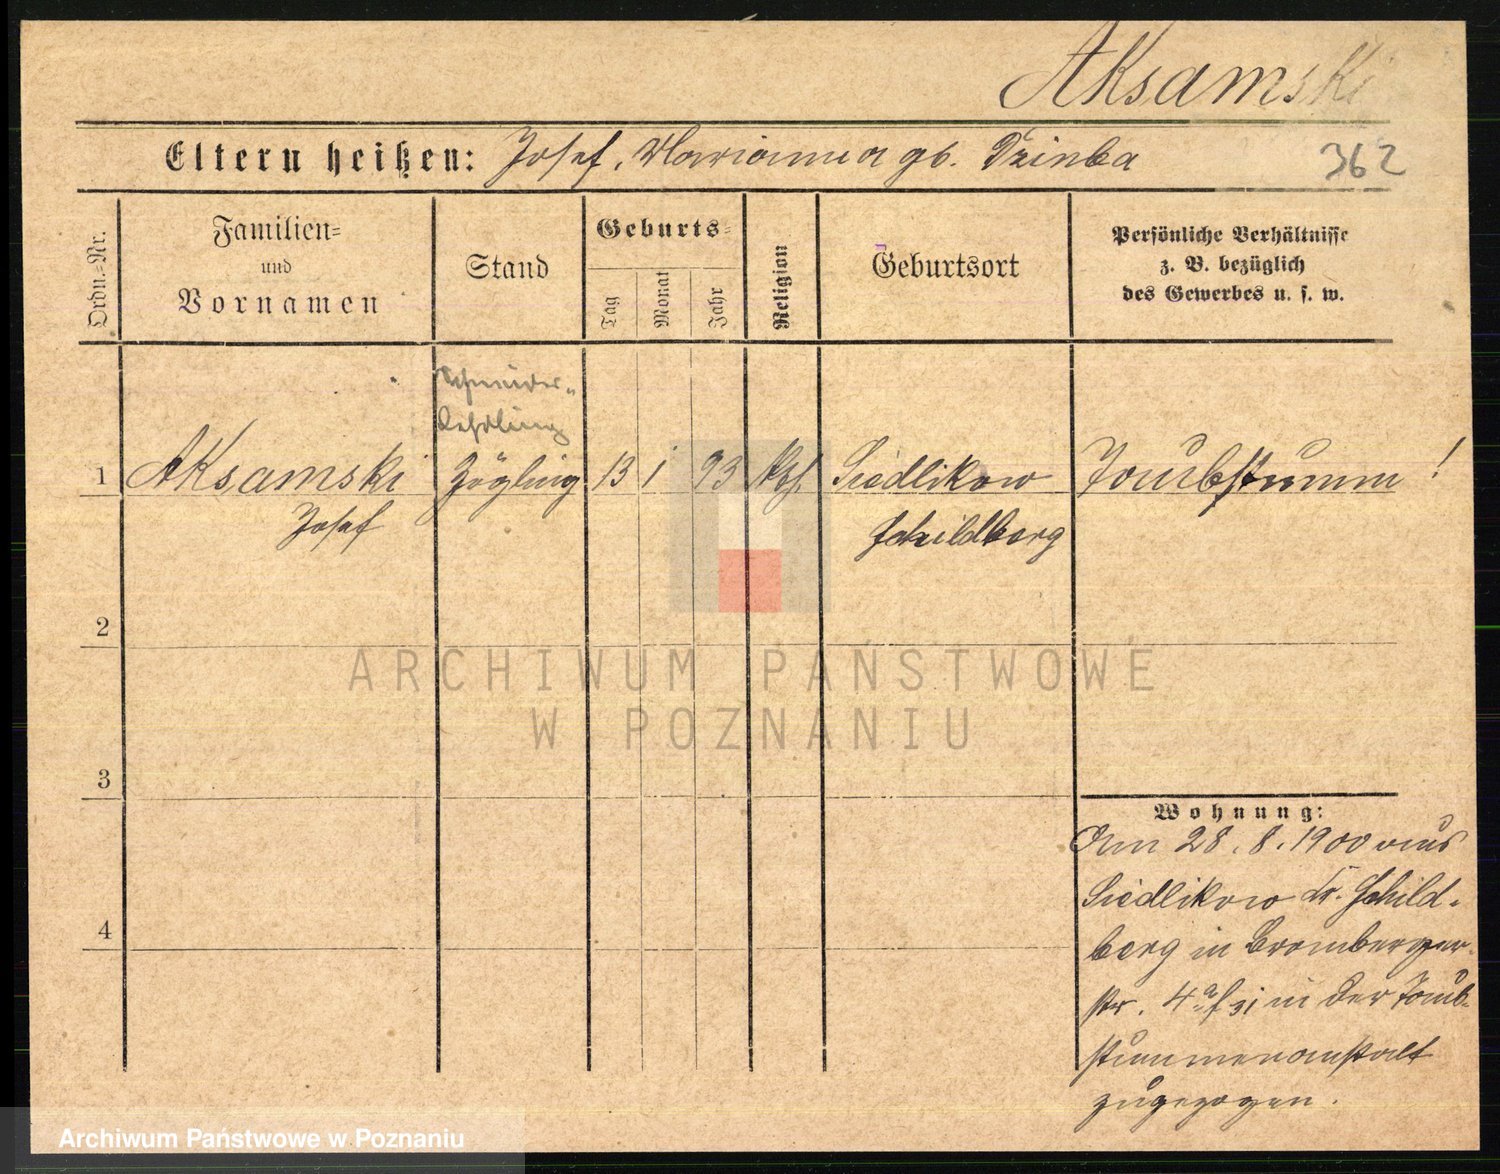 Aksamski
Eltern heißen: Josef, Marianna gb. Dzinba
362
Ordn.=Nr.
Familien=
und
Vornamen
Stand
Geburts=
Tag
Monat
Jahr
Religion
Geburtsort
Persönliche Verhältnisse
z. B. bezüglich
des Gewerbes u. s. w.
Schneider=
Lehrling
1 Aksamski Zögling 13 1 93 kath. Siedlikow Taubstumm!
Josef Schildberg
2
3
4
Wohnung:
Am 28.8.1900 aus
Siedlikow Kr. Schild-
berg in Bromberger-
str. 4a in der Taub-
stummenanstalt
zugezogen.
ARCHIWUM PAŃSTWOWE
W POZNANIU
Archiwum Państwowe w Poznaniu